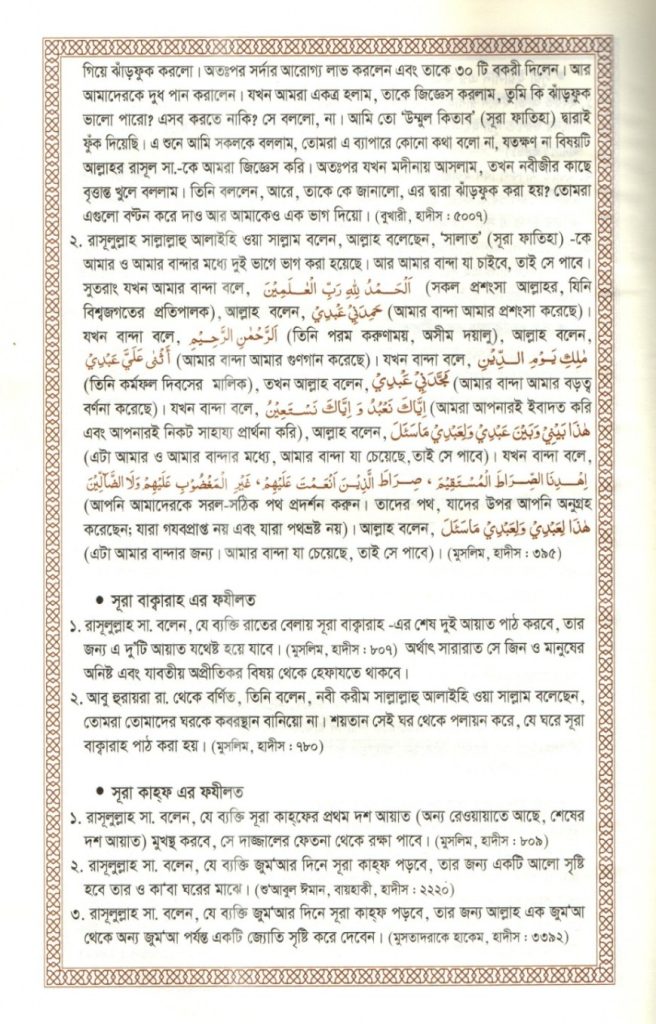 গিয়ে ঝাঁড়ফুক করলো। অতঃপর সর্দার আরোগ্য লাভ করলেন এবং তাকে ৩০ টি বকরী দিলেন। আর
আমাদেরকে দুধ পান করালেন। যখন আমরা একত্র হলাম, তাকে জিজ্ঞেস করলাম, তুমি কি ঝাঁড়ফুক
ভালো পারো? এসব করতে নাকি? সে বললো, না। আমি তো ‘উম্মুল কিতাব’ (সূরা ফাতিহা) দ্বারাই
ফুঁক দিয়েছি। এ শুনে আমি সকলকে বললাম, তোমরা এ ব্যাপারে কোনো কথা বলো না, যতক্ষণ না বিষয়টি
আল্লাহর রাসূল সা.-কে আমরা জিজ্ঞেস করি। অতঃপর যখন মদীনায় আসলাম, তখন নবীজীর কাছে
বৃত্তান্ত খুলে বললাম। তিনি বললেন, আরে, তাকে কে জানালো, এর দ্বারা ঝাঁড়ফুক করা হয়? তোমরা
এগুলো বণ্টন করে দাও আর আমাকেও এক ভাগ দিয়ো। (বুখারী, হাদীস : ৫০০৭)
২. রাসূলুল্লাহ সাল্লাল্লাহু আলাইহি ওয়া সাল্লাম বলেন, আল্লাহ বলেছেন, ‘সালাত’ (সূরা ফাতিহা) -কে
আমার ও আমার বান্দার মধ্যে দুই ভাগে ভাগ করা হয়েছে। আর আমার বান্দা যা চাইবে, তাই সে পাবে।
সুতরাং যখন আমার বান্দা বলে, اَلْحَمْدُ لِلّٰهِ رَبِّ الْعٰلَمِيْنَ (সকল প্রশংসা আল্লাহর, যিনি
বিশ্বজগতের প্রতিপালক), আল্লাহ বলেন, حَمِدَنِيْ عَبْدِيْ (আমার বান্দা আমার প্রশংসা করেছে)।
যখন বান্দা বলে, اَلرَّحْمٰنِ الرَّحِيْمِ (তিনি পরম করুণাময়, অসীম দয়ালু), আল্লাহ বলেন,
اَثْنٰى عَلَيَّ عَبْدِيْ (আমার বান্দা আমার গুণগান করেছে)। যখন বান্দা বলে, مٰلِكِ يَوْمِ الدِّيْنِ
(তিনি কর্মফল দিবসের মালিক), তখন আল্লাহ বলেন, مَجَّدَنِيْ عَبْدِيْ (আমার বান্দা আমার বড়ত্ব
বর্ণনা করেছে)। যখন বান্দা বলে, اِيَّاكَ نَعْبُدُ وَ اِيَّاكَ نَسْتَعِيْنُ (আমরা আপনারই ইবাদত করি
এবং আপনারই নিকট সাহায্য প্রার্থনা করি), আল্লাহ বলেন, هٰذَا بَيْنِيْ وَبَيْنَ عَبْدِيْ وَلِعَبْدِيْ مَاسَئَلَ
(এটা আমার ও আমার বান্দার মধ্যে, আমার বান্দা যা চেয়েছে, তাই সে পাবে)। যখন বান্দা বলে,
اِهْدِنَا الصِّرَاطَ الْمُسْتَقِيْمَ ، صِرَاطَ الَّذِيْنَ اَنْعَمْتَ عَلَيْهِمْ، غَيْرِ الْمَغْضُوْبِ عَلَيْهِمْ وَلَا الضَّآلِّيْنَ
(আপনি আমাদেরকে সরল-সঠিক পথ প্রদর্শন করুন। তাদের পথ, যাদের উপর আপনি অনুগ্রহ
করেছেন; যারা গযবপ্রাপ্ত নয় এবং যারা পথভ্রষ্ট নয়)। আল্লাহ বলেন, هٰذَا لِعَبْدِيْ وَلِعَبْدِيْ مَاسَئَلَ
(এটা আমার বান্দার জন্য। আমার বান্দা যা চেয়েছে, তাই সে পাবে)। (মুসলিম, হাদীস : ৩৯৫)
• সূরা বাক্বারাহ এর ফযীলত
১. রাসূলুল্লাহ সা. বলেন, যে ব্যক্তি রাতের বেলায় সূরা বাক্বারাহ -এর শেষ দুই আয়াত পাঠ করবে, তার
জন্য এ দু’টি আয়াত যথেষ্ট হয়ে যাবে। (মুসলিম, হাদীস : ৮০৭) অর্থাৎ সারারাত সে জিন ও মানুষের
অনিষ্ট এবং যাবতীয় অপ্রীতিকর বিষয় থেকে হেফাযতে থাকবে।
২. আবু হুরায়রা রা. থেকে বর্ণিত, তিনি বলেন, নবী করীম সাল্লাল্লাহু আলাইহি ওয়া সাল্লাম বলেছেন,
তোমরা তোমাদের ঘরকে কবরস্থান বানিয়ো না। শয়তান সেই ঘর থেকে পলায়ন করে, যে ঘরে সূরা
বাক্বারাহ পাঠ করা হয়। (মুসলিম, হাদীস : ৭৮০)
• সূরা কাহ্ফ এর ফযীলত
১. রাসূলুল্লাহ সা. বলেন, যে ব্যক্তি সূরা কাহ্ফের প্রথম দশ আয়াত (অন্য রেওয়ায়াতে আছে, শেষের
দশ আয়াত) মুখস্থ করবে, সে দাজ্জালের ফেতনা থেকে রক্ষা পাবে। (মুসলিম, হাদীস : ৮০৯)
২. রাসূলুল্লাহ সা. বলেন, যে ব্যক্তি জুম‘আর দিনে সূরা কাহ্ফ পড়বে, তার জন্য একটি আলো সৃষ্টি
হবে তার ও কা‘বা ঘরের মাঝে। (শু‘আবুল ঈমান, বায়হাকী, হাদীস : ২২২০)
৩. রাসূলুল্লাহ সা. বলেন, যে ব্যক্তি জুম‘আর দিনে সূরা কাহ্ফ পড়বে, তার জন্য আল্লাহ এক জুম‘আ
থেকে অন্য জুম‘আ পর্যন্ত একটি জ্যোতি সৃষ্টি করে দেবেন। (মুসতাদরাকে হাকেম, হাদীস : ৩৩৯২)